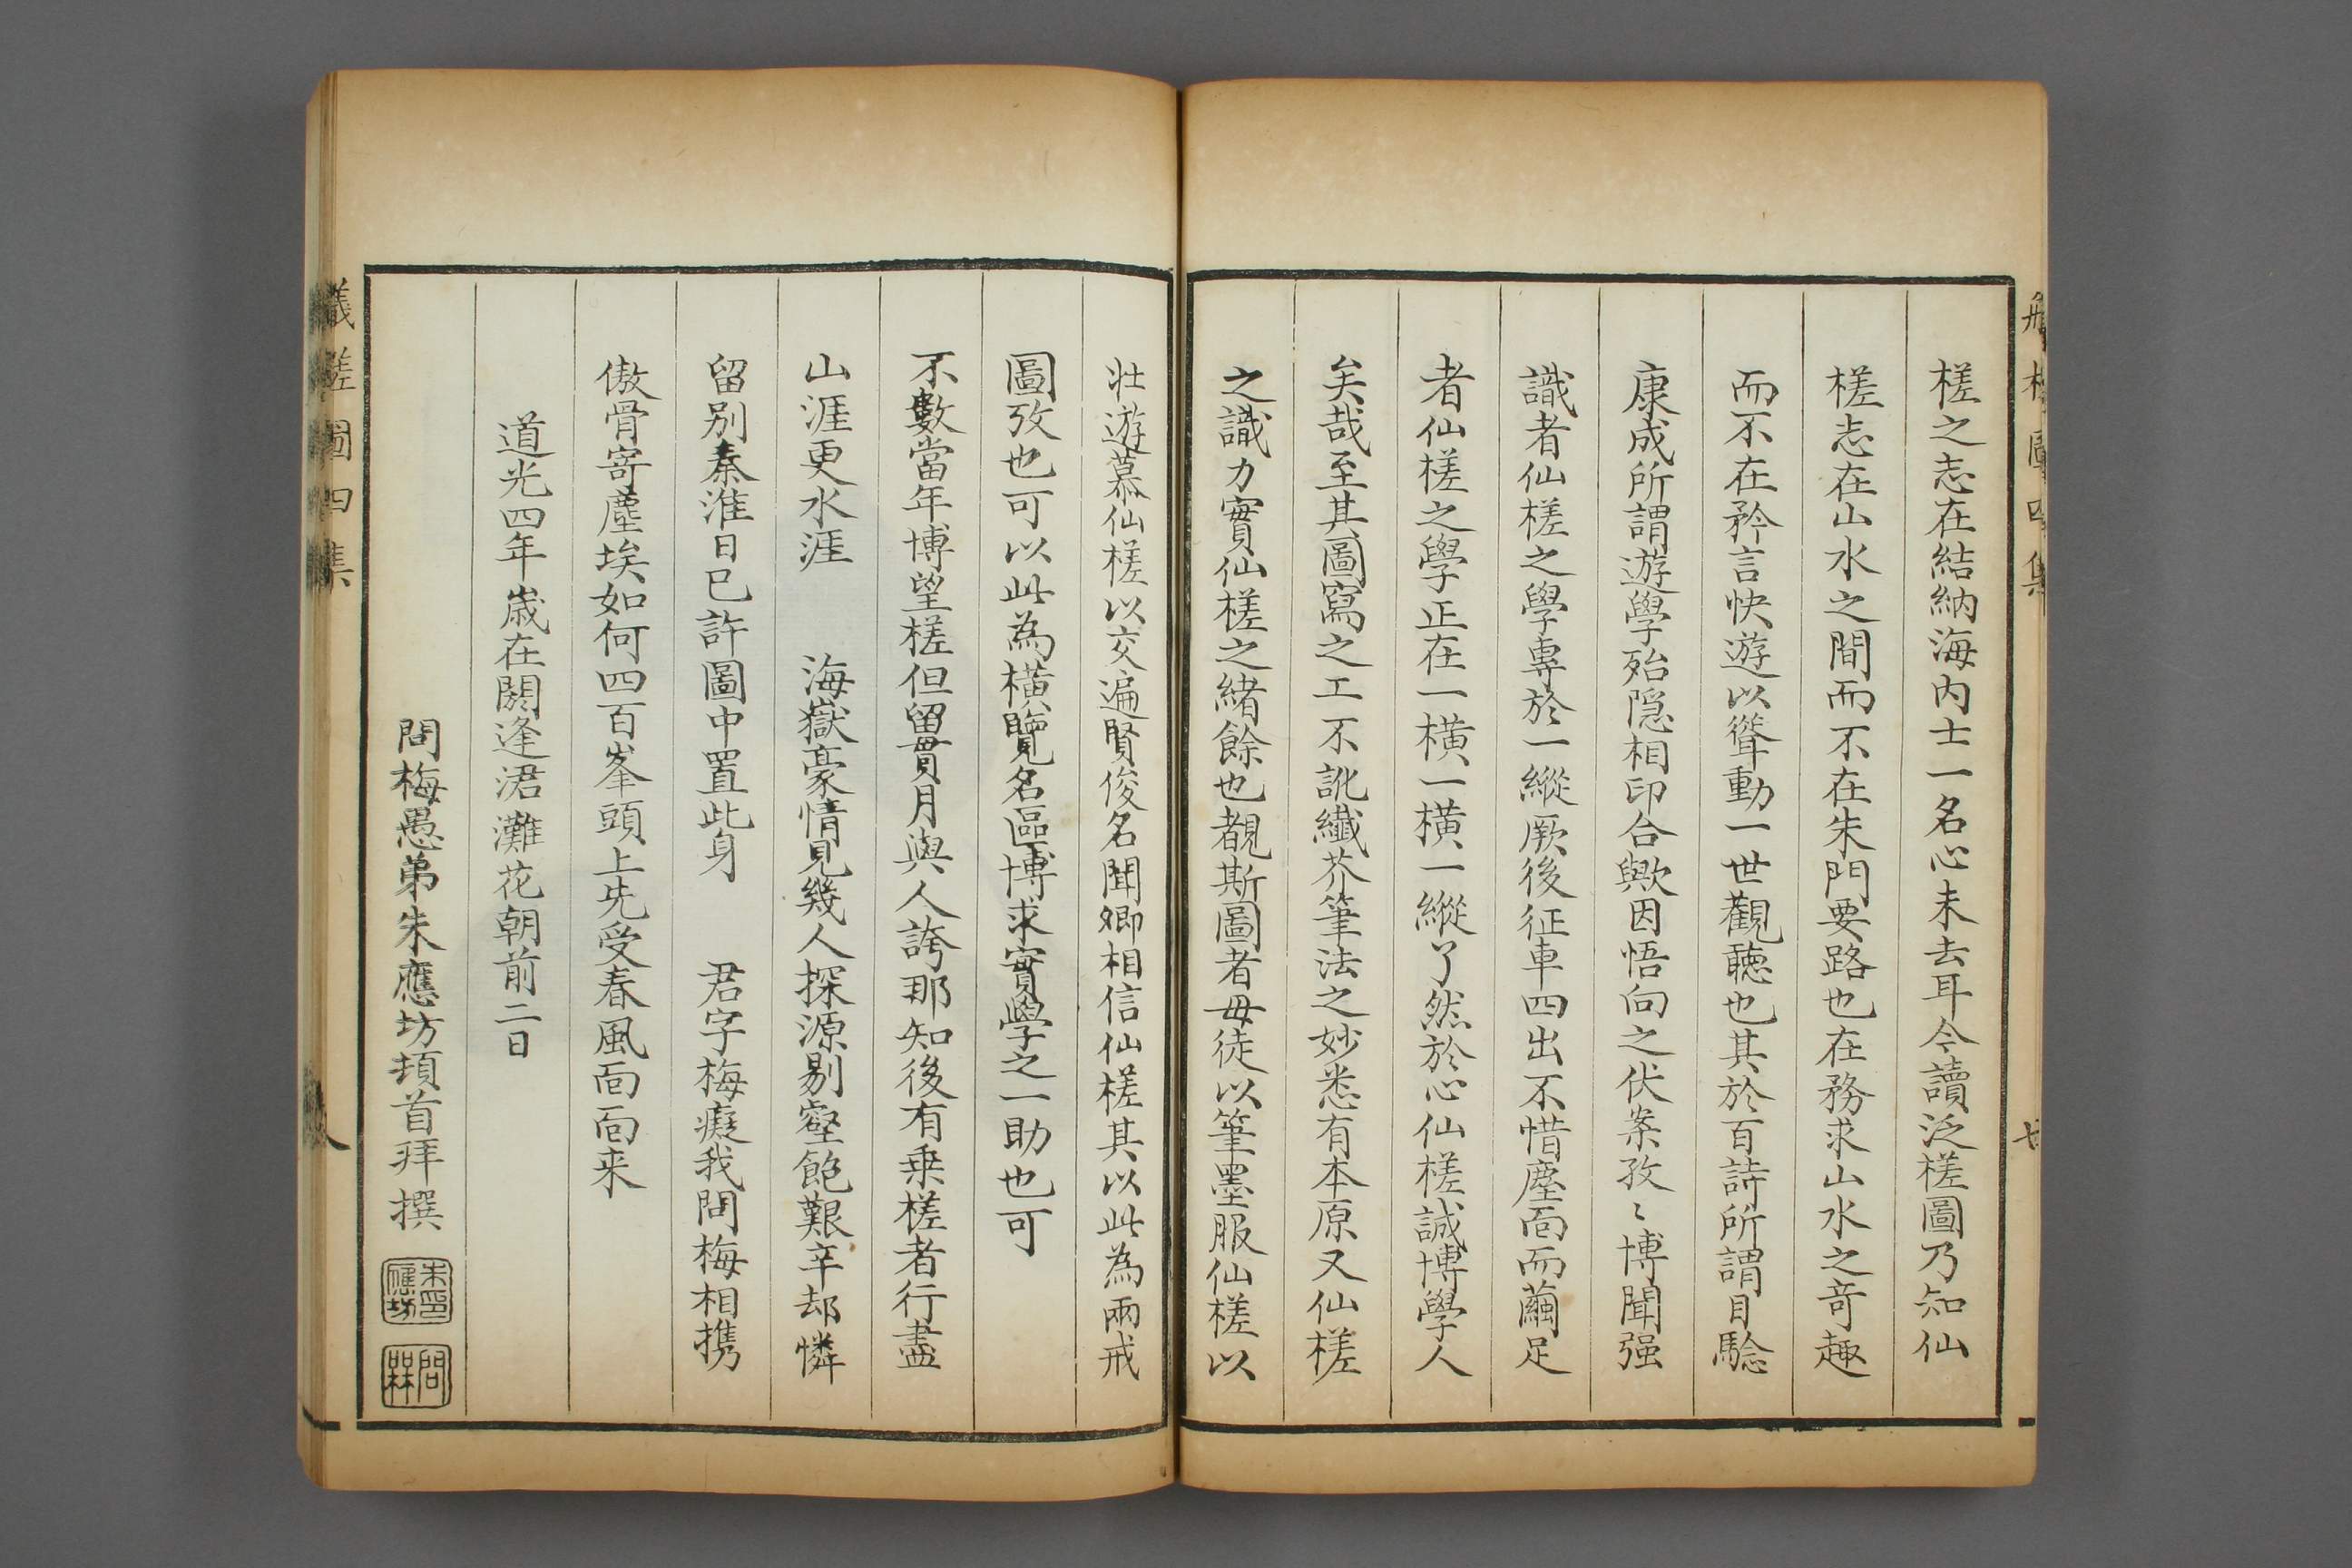 槎之志在結納海内士一名心未去耳今讀泛槎圖乃知仙
槎志在山水之間而不在朱門要路也在務求山水之竒趣
而不在矜言快遊以聳動一世觀聽也其於百詩所謂目騐
康成所謂遊學殆隠相印合歟因悟向之伏案孜〻博聞强
識者仙槎之學專於一縱厥後征車四出不惜塵面而繭足
者仙槎之學正在一橫一橫一縱了然於心仙槎誠博學人
矣哉至其圖寫之工不訛纖芥筆法之妙悉有本原又仙槎
之識力實仙槎之緒餘也覩斯圖者毋徒以筆墨服仙槎以
壯遊慕仙槎以交遍賢俊名聞卿相信仙槎其以此為兩戒
圖攷也可以此為橫覽名區博求實學之一助也可
不數當年博望槎但留貫月與人誇那知後有乗槎者行盡
山涯更水涯 海嶽豪情見幾人探源剔壑飽艱辛却憐
留别秦淮日已許圖中置此身 君字梅癡我問梅相携
傲骨寄塵埃如何四百峯頭上先受春風面面来
道光四年歲在閼逢涒灘花朝前二日
問梅愚弟朱應坊頓首拜撰
朱印應坊
問槑
槎圖四集